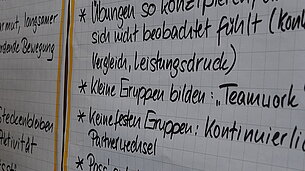 mut, langsamer
Bewegung
Steckenbleiben
* Übungen so konzipieren,
sich nicht beobachtet fühlt (Kon
Vergleich, Leistungsdruck)
* Kleine Gruppen bilden: „Teamwork"
* Keine festen Gruppen: Kontinuierlic
Partnerwechsel